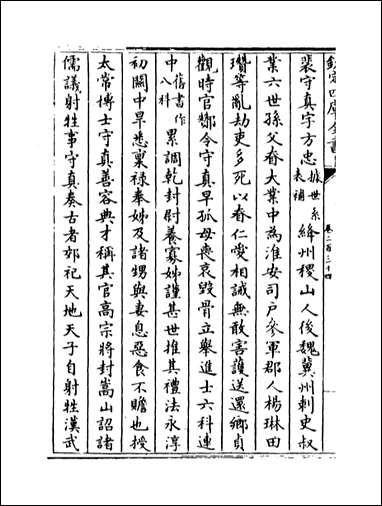 欽定四庫全書
卷二百三十四
裴守真字方忠據世系表補絳州稷山人後魏冀州刺史叔
業六世孫父眘大業中為淮安司戶參軍郡人楊琳田
瓚等亂劫吏多死以眘仁愛相誡無敢害護送還鄉貞
觀時官鄮令守真早孤母喪哀毀骨立舉進士六科連
中舊書作八科累調乾封尉養寡姊謹甚世推其禮法永淳
初關中旱悉稟祿奉姊及諸甥與妻息惡食不贍也授
太常博士守真善容典才稱其官高宗將封嵩山詔諸
儒議射牲事守真奏古者郊祀天地天子自射牲漢武